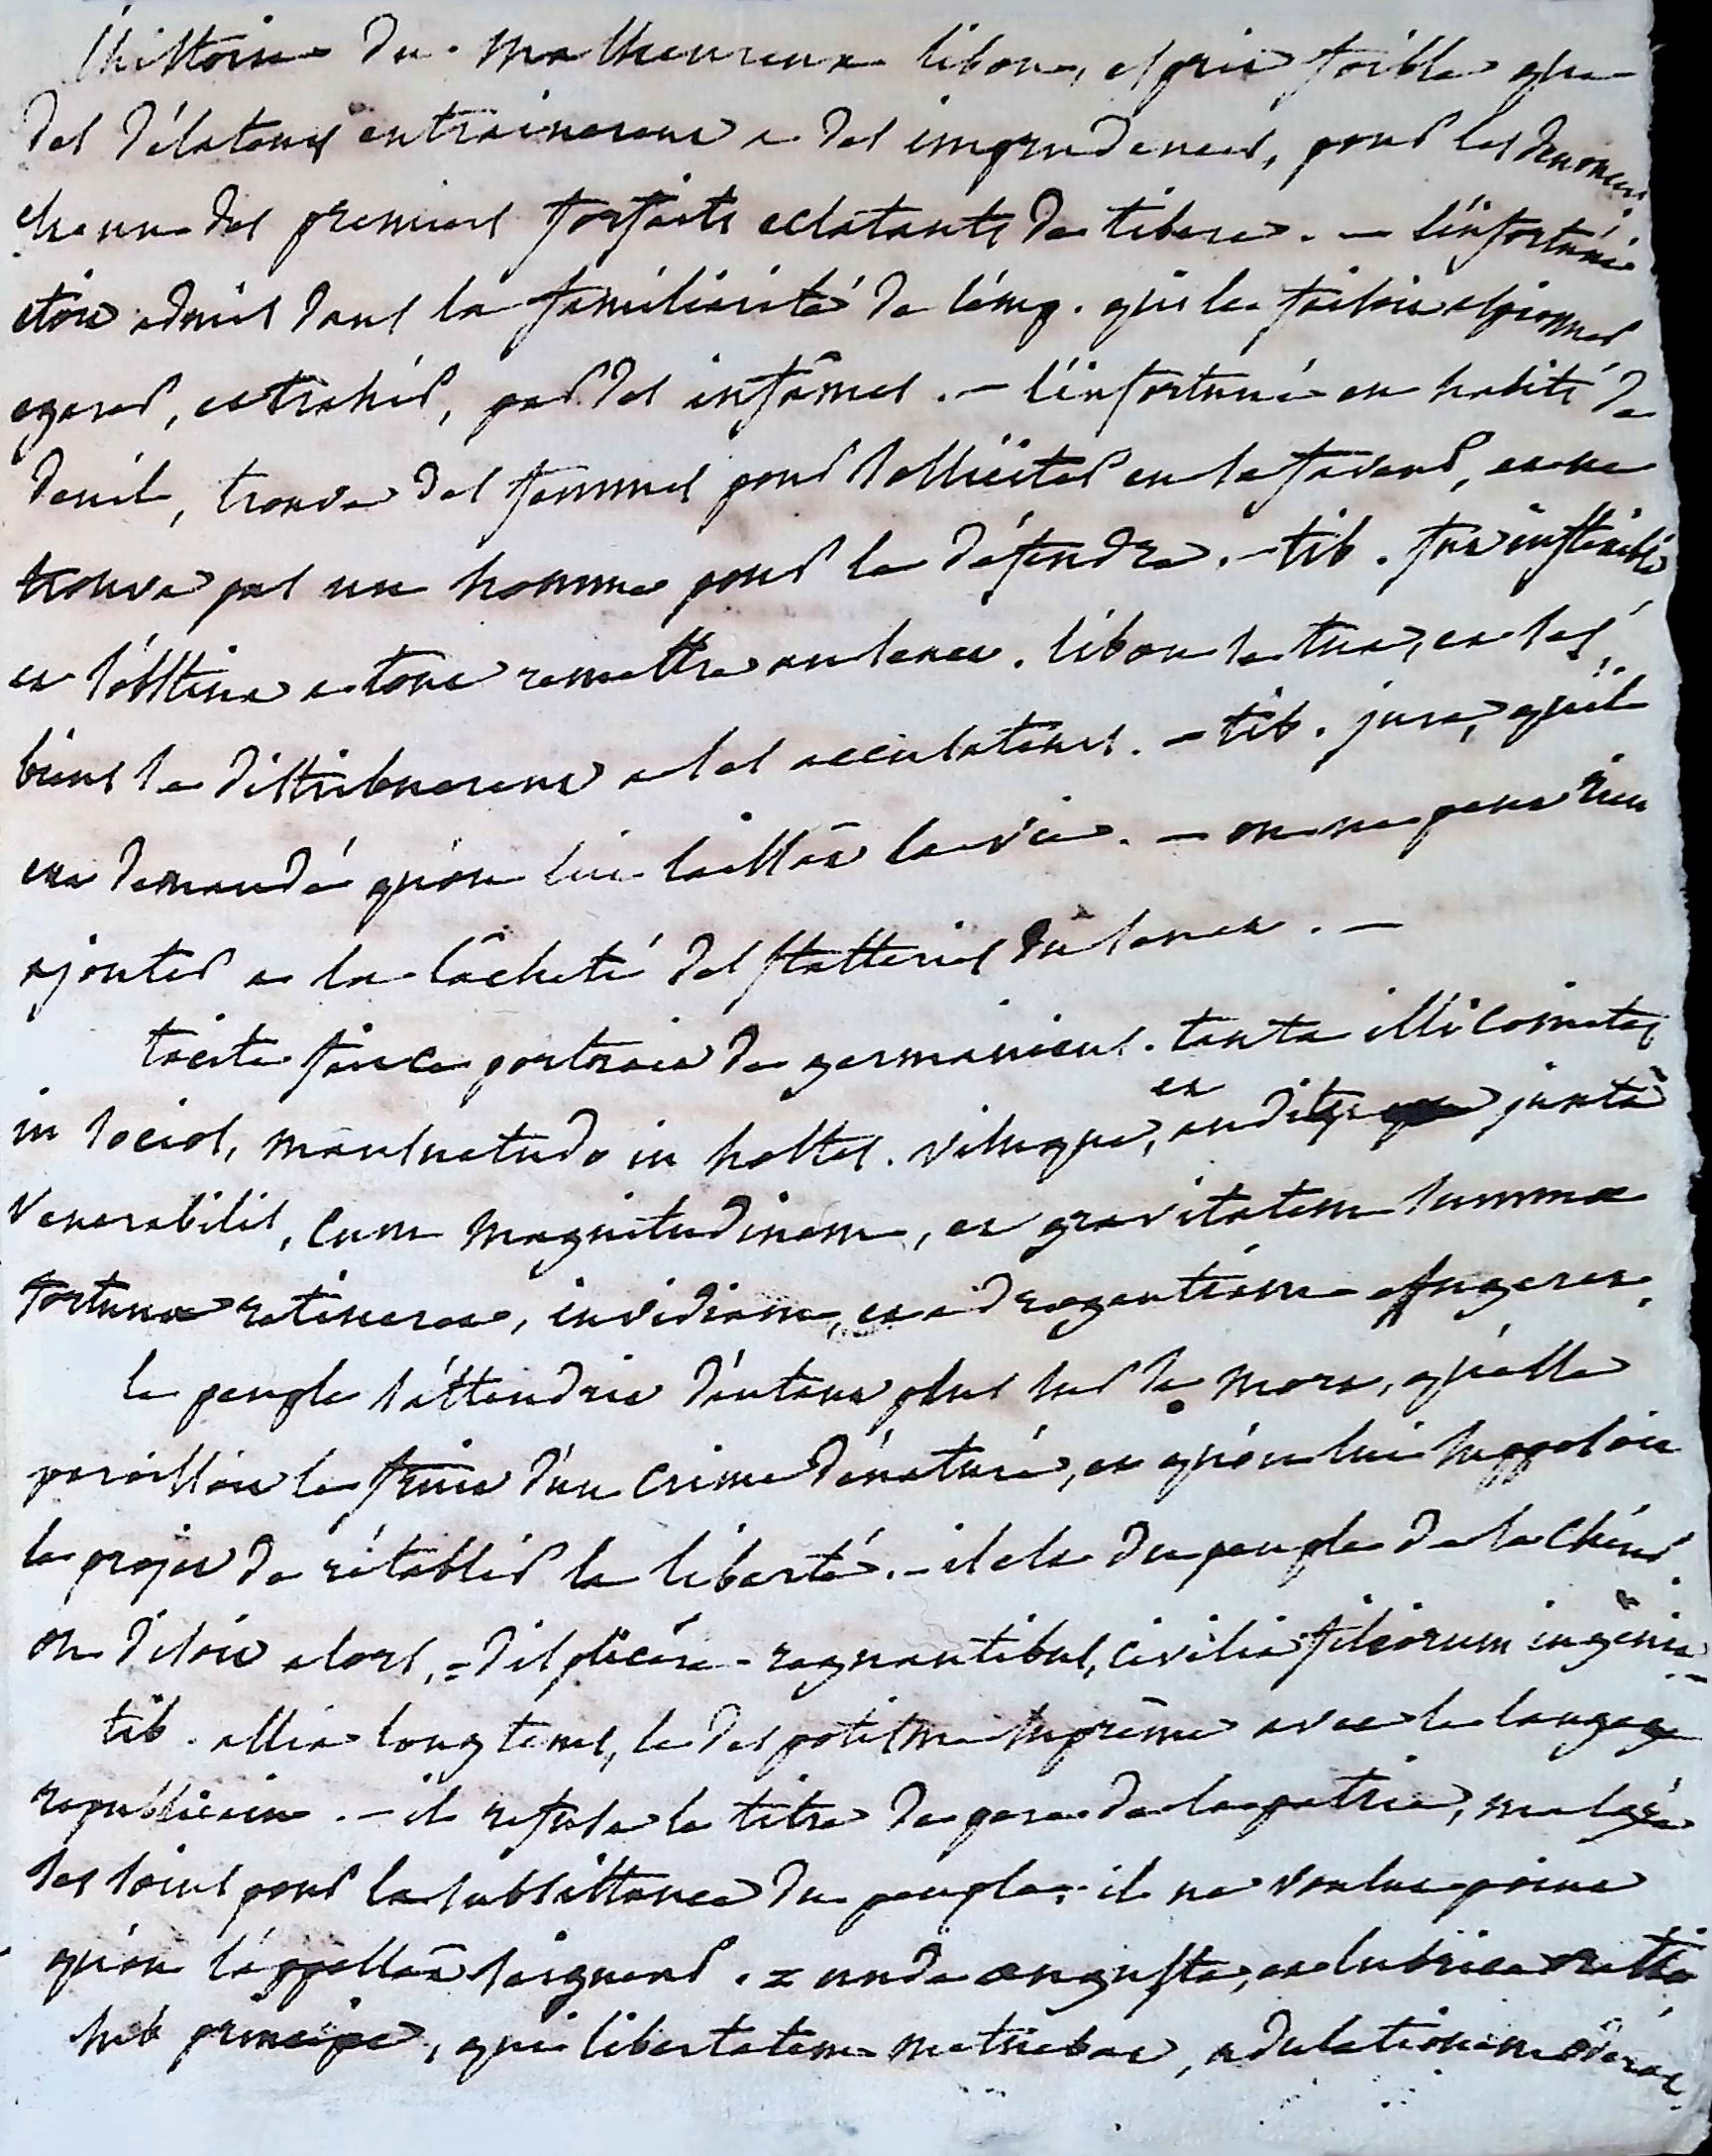 l'histoire du malheureux libon, esprit foible que
des délateurs entrainerent a des imprudences, pour les denoncer
est un des premiers forfaits eclatants de tibere. — l'infortuné
etoit admis dans la familiarité de l'emp. qui le faisoit espionner
egarer, et trahir, par des infâmes. — l'infortuné en habits de
deuil, trouva des femmes pour solliciter en sa faveur, et ne
trouva pas un homme pour le défendre. — tib. fut inflexible
et s'obstina a tout remettre au senat. libon se tua, et ses
biens se distribuerent a ses accusateurs. — tib. jura, qu'il
eut demandé qu'on lui laissât la vie. — on ne peut rien
ajouter a la lâcheté des flatteries du senat. —
tacite fait ce portrait de germanicus. tanta illi comitas
in socios, mansuetudo in hostes. visuque, et auditu juxtà
venerabilis, cum magnitudinem, et gravitatem summæ
fortunæ retineret, invidiam, et adrogantiam effugeret.
le peuple s'attendrit d'autant plus sur sa mort, qu'elle
paroissoit le fruit d'un crime dénaturé, et qu'on lui supposoit
le projet de rétablir la liberté. — il est du peuple de la chérir
on disoit alors, = displicere regnantibus, civilia filiorum ingenia =
tib. allia longtems, le despotisme suprême avec le langage
republicain. — il refusa le titre de pere de la patrie, malgré
ses soins pour la subsistance du peuple; il ne voulut point
qu'on l'appellât seigneur. = unde angusta, et lubrica oratio
sub principe, qui libertatem metuebat, adulationem oderat.